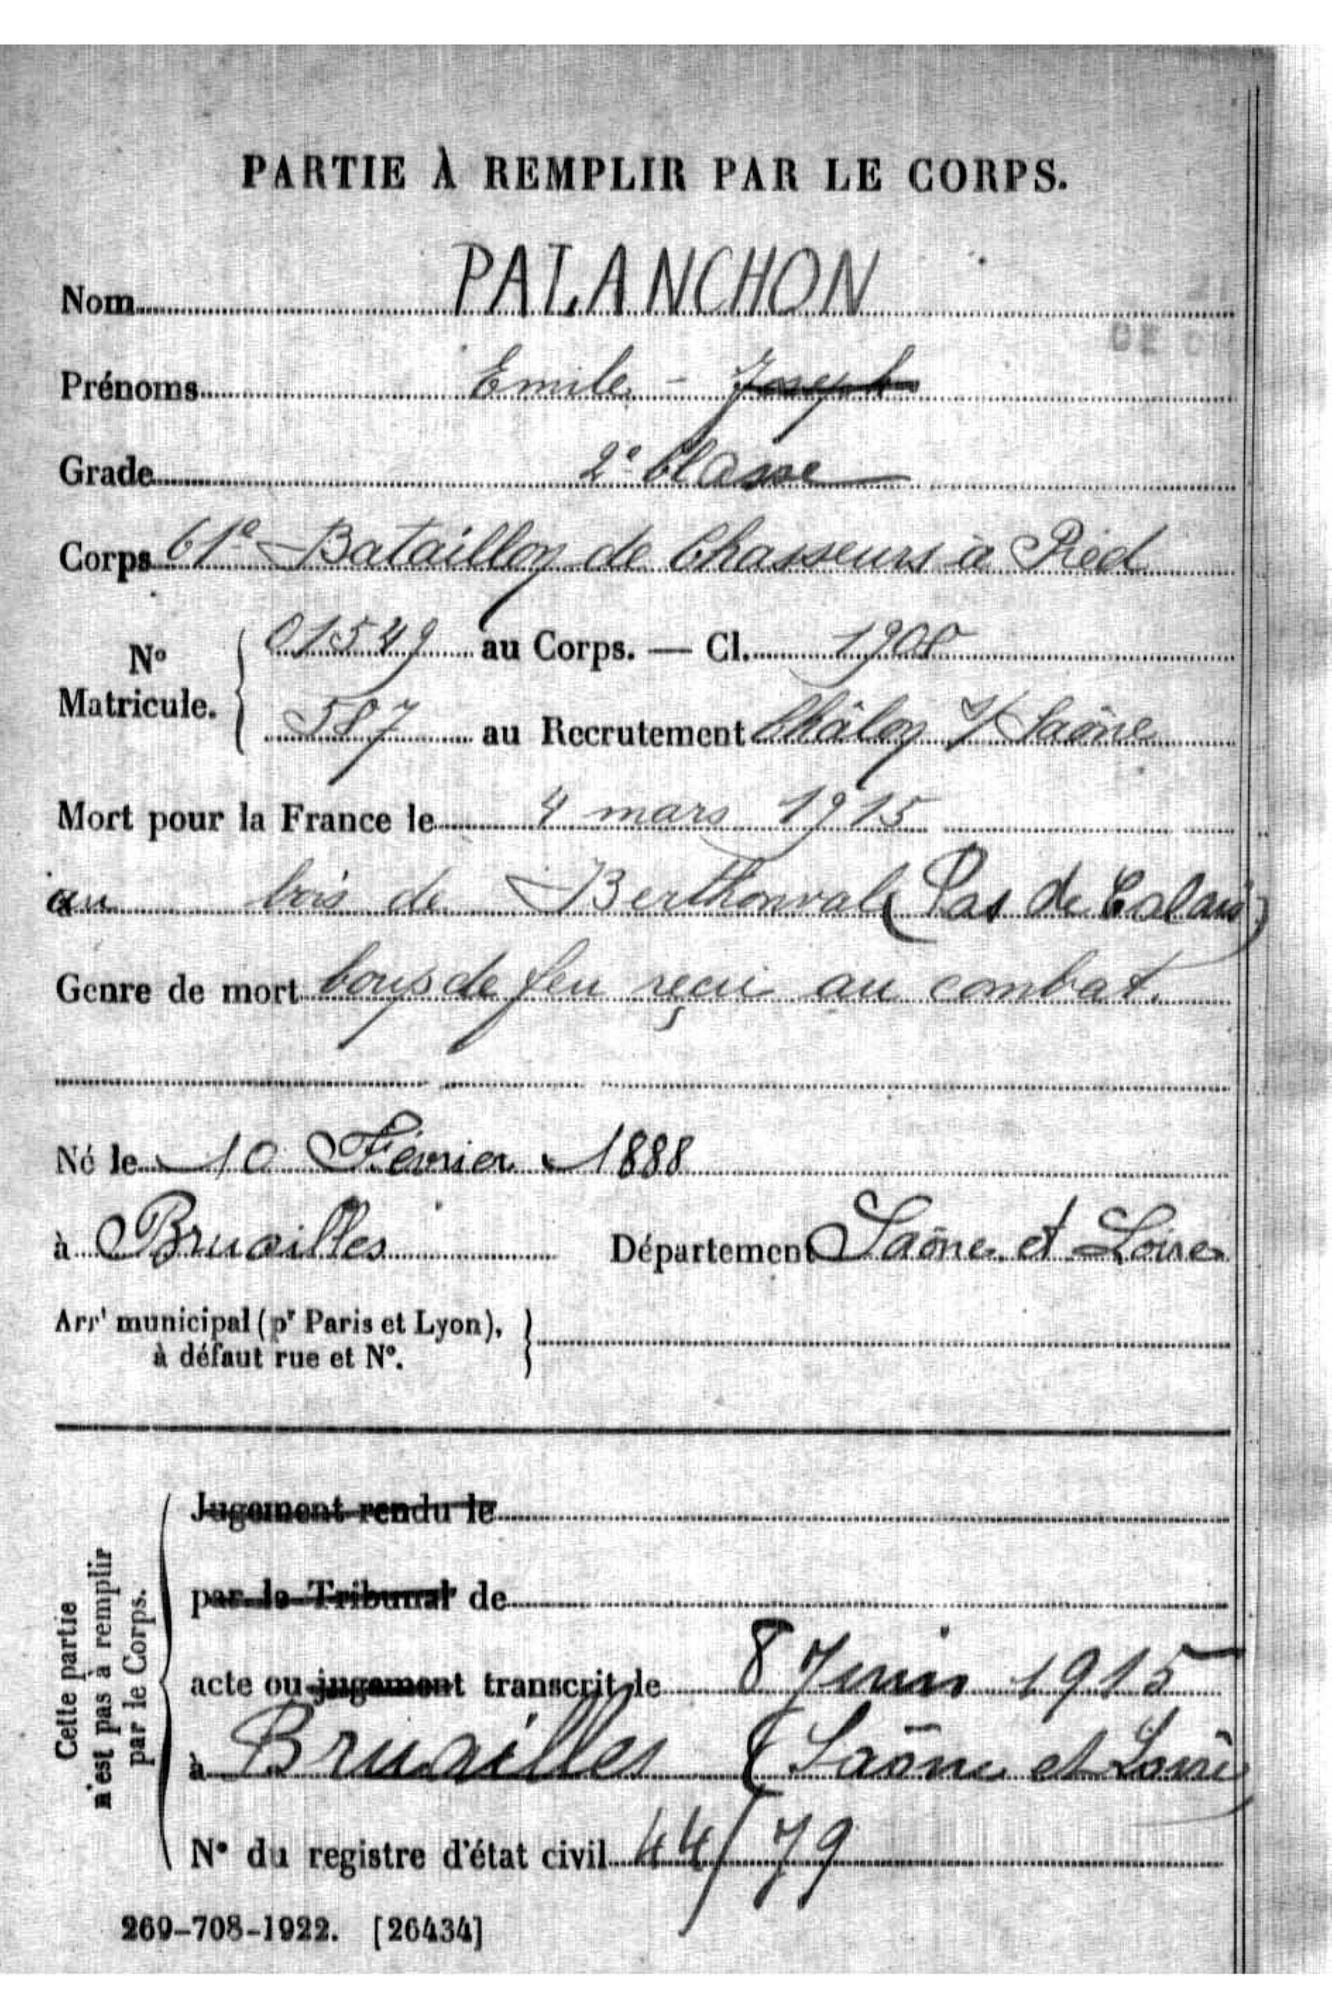 PARTIE À REMPLIR PAR LE CORPS.
Nom PALANCHON
Prénoms Emile - Joseph
Grade 2e Classe
Corps 61e Bataillon de Chasseurs à Pied
No Matricule. { 01549 au Corps. — Cl. 1908
587 au Recrutement Châlon s/ Saône
Mort pour la France le 4 mars 1915
au bois de Berthonval (Pas de Calais)
Genre de mort Coups de feu reçu au combat.
Né le 10 Février 1888
à Bruailles Département Saône et Loire
Arrt municipal (pr Paris et Lyon),
à défaut rue et No. }
Cette partie n'est pas à remplir par le Corps.
Jugement rendu le
par le Tribunal de
acte ou jugement transcrit le 8 Juin 1915
à Bruailles (Saône et Loire)
No du registre d'état civil 44/79
269-708-1922. [26434]